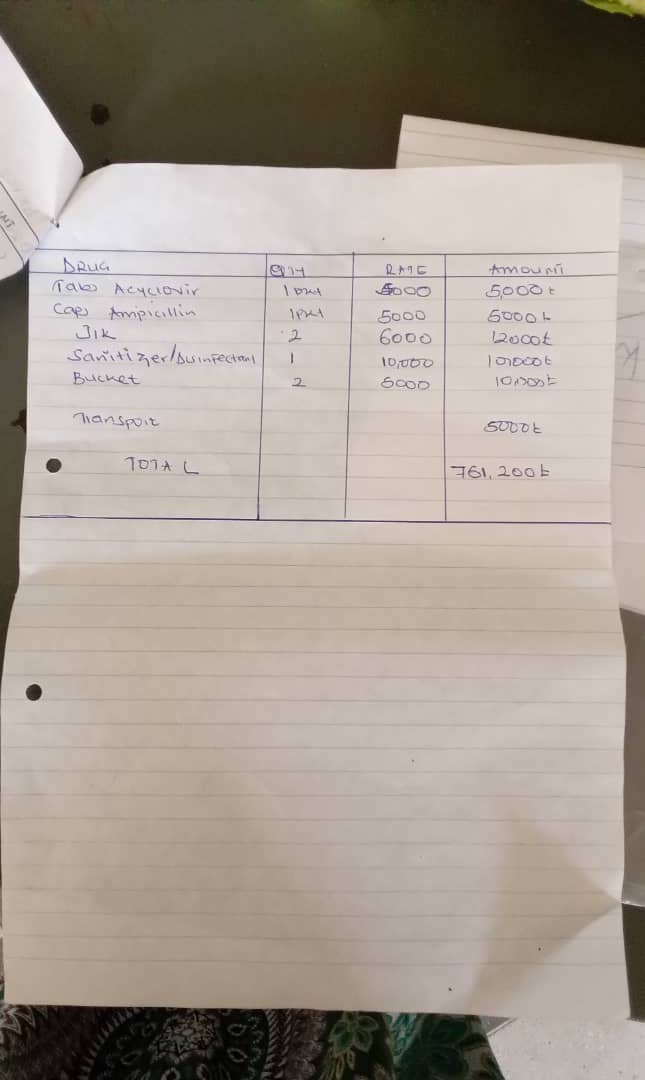 DRUG QTY RATE AMOUNT
Tabs Acyclovir 1pkt 5000 5,000t
Caps Ampicillin 1pkt 5000 5000t
Jik 2 6000 12000t
Sanitizer/Disinfectant 1 10,000 10,000t
Bucket 2 5000 10,000t
Transport 5000t
TOTAL 761,200t